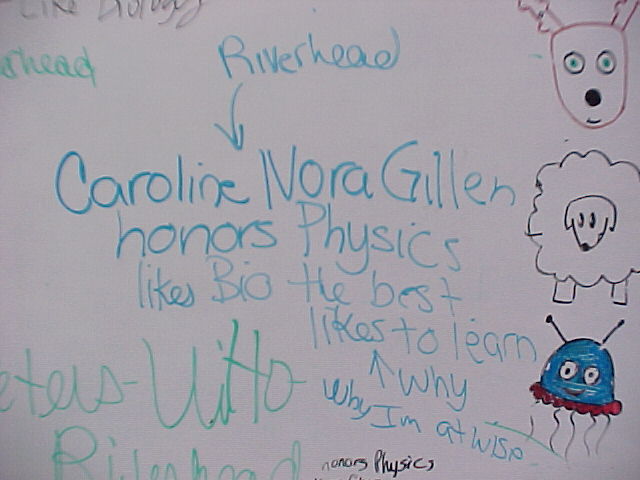 Like Biology
Riverhead
Caroline Nora Gillen
honors Physics
likes Bio the best
likes to learn
Why
Why I'm at WISE
Uitto
Riverhead
honors Physics